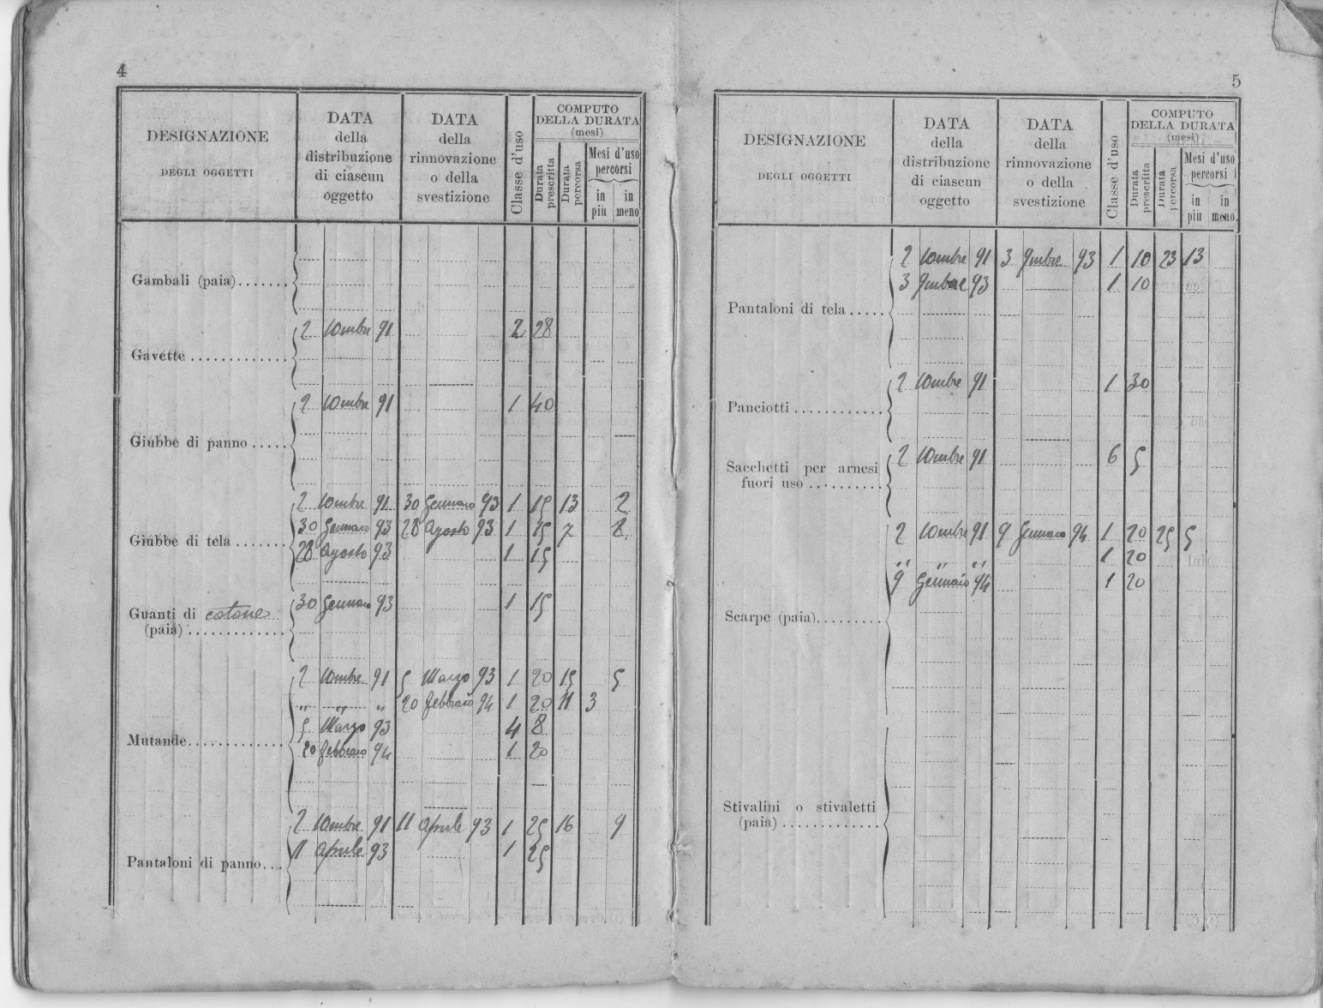 4
DESIGNAZIONE
DEGLI OGGETTI
DATA
della
distribuzione
di ciascun
oggetto
DATA
della
rinnovazione
o della
svestizione
Classe d'uso
COMPUTO
DELLA DURATA
(mesi)
Durata prescritta
Durata percorsa
Mesi d'uso
percorsi
in più
in meno
Gambali (paia).......
2 10mbre 91 2 28
Gavette ............
2 10mbre 91 1 40
Giubbe di panno .....
2 10mbre 91 30 Gennaio 93 1 15 13 2
30 Gennaio 93 28 Agosto 93 1 15 7 8
Giubbe di tela .......
28 Agosto 93 1 15
30 Gennaio 93 1 15
Guanti di cotone
(paia) ............
2 10mbre 91 5 Marzo 93 1 20 15 5
" " " 20 febbraio 94 1 20 11 3
5 Marzo 93 4 8
Mutande............
20 febbraio 94 1 20
2 10mbre 91 11 Aprile 93 1 25 16 9
11 Aprile 93 1 25
Pantaloni di panno...
5
DESIGNAZIONE
DEGLI OGGETTI
DATA
della
distribuzione
di ciascun
oggetto
DATA
della
rinnovazione
o della
svestizione
Classe d'uso
COMPUTO
DELLA DURATA
(mesi)
Durata prescritta
Durata percorsa
Mesi d'uso
percorsi
in più
in meno
2 10mbre 91 3 9mbre 93 1 10 23 13
3 9mbre 93 1 10
Pantaloni di tela .....
2 10mbre 91 1 30
Panciotti ...........
2 10mbre 91 6 5
Sacchetti per arnesi
fuori uso ..........
2 10mbre 91 9 Gennaio 94 1 20 25 5
" " " 1 20
9 Gennaio 94 1 20
Scarpe (paia)........
Stivalini o stivaletti
(paia) ............